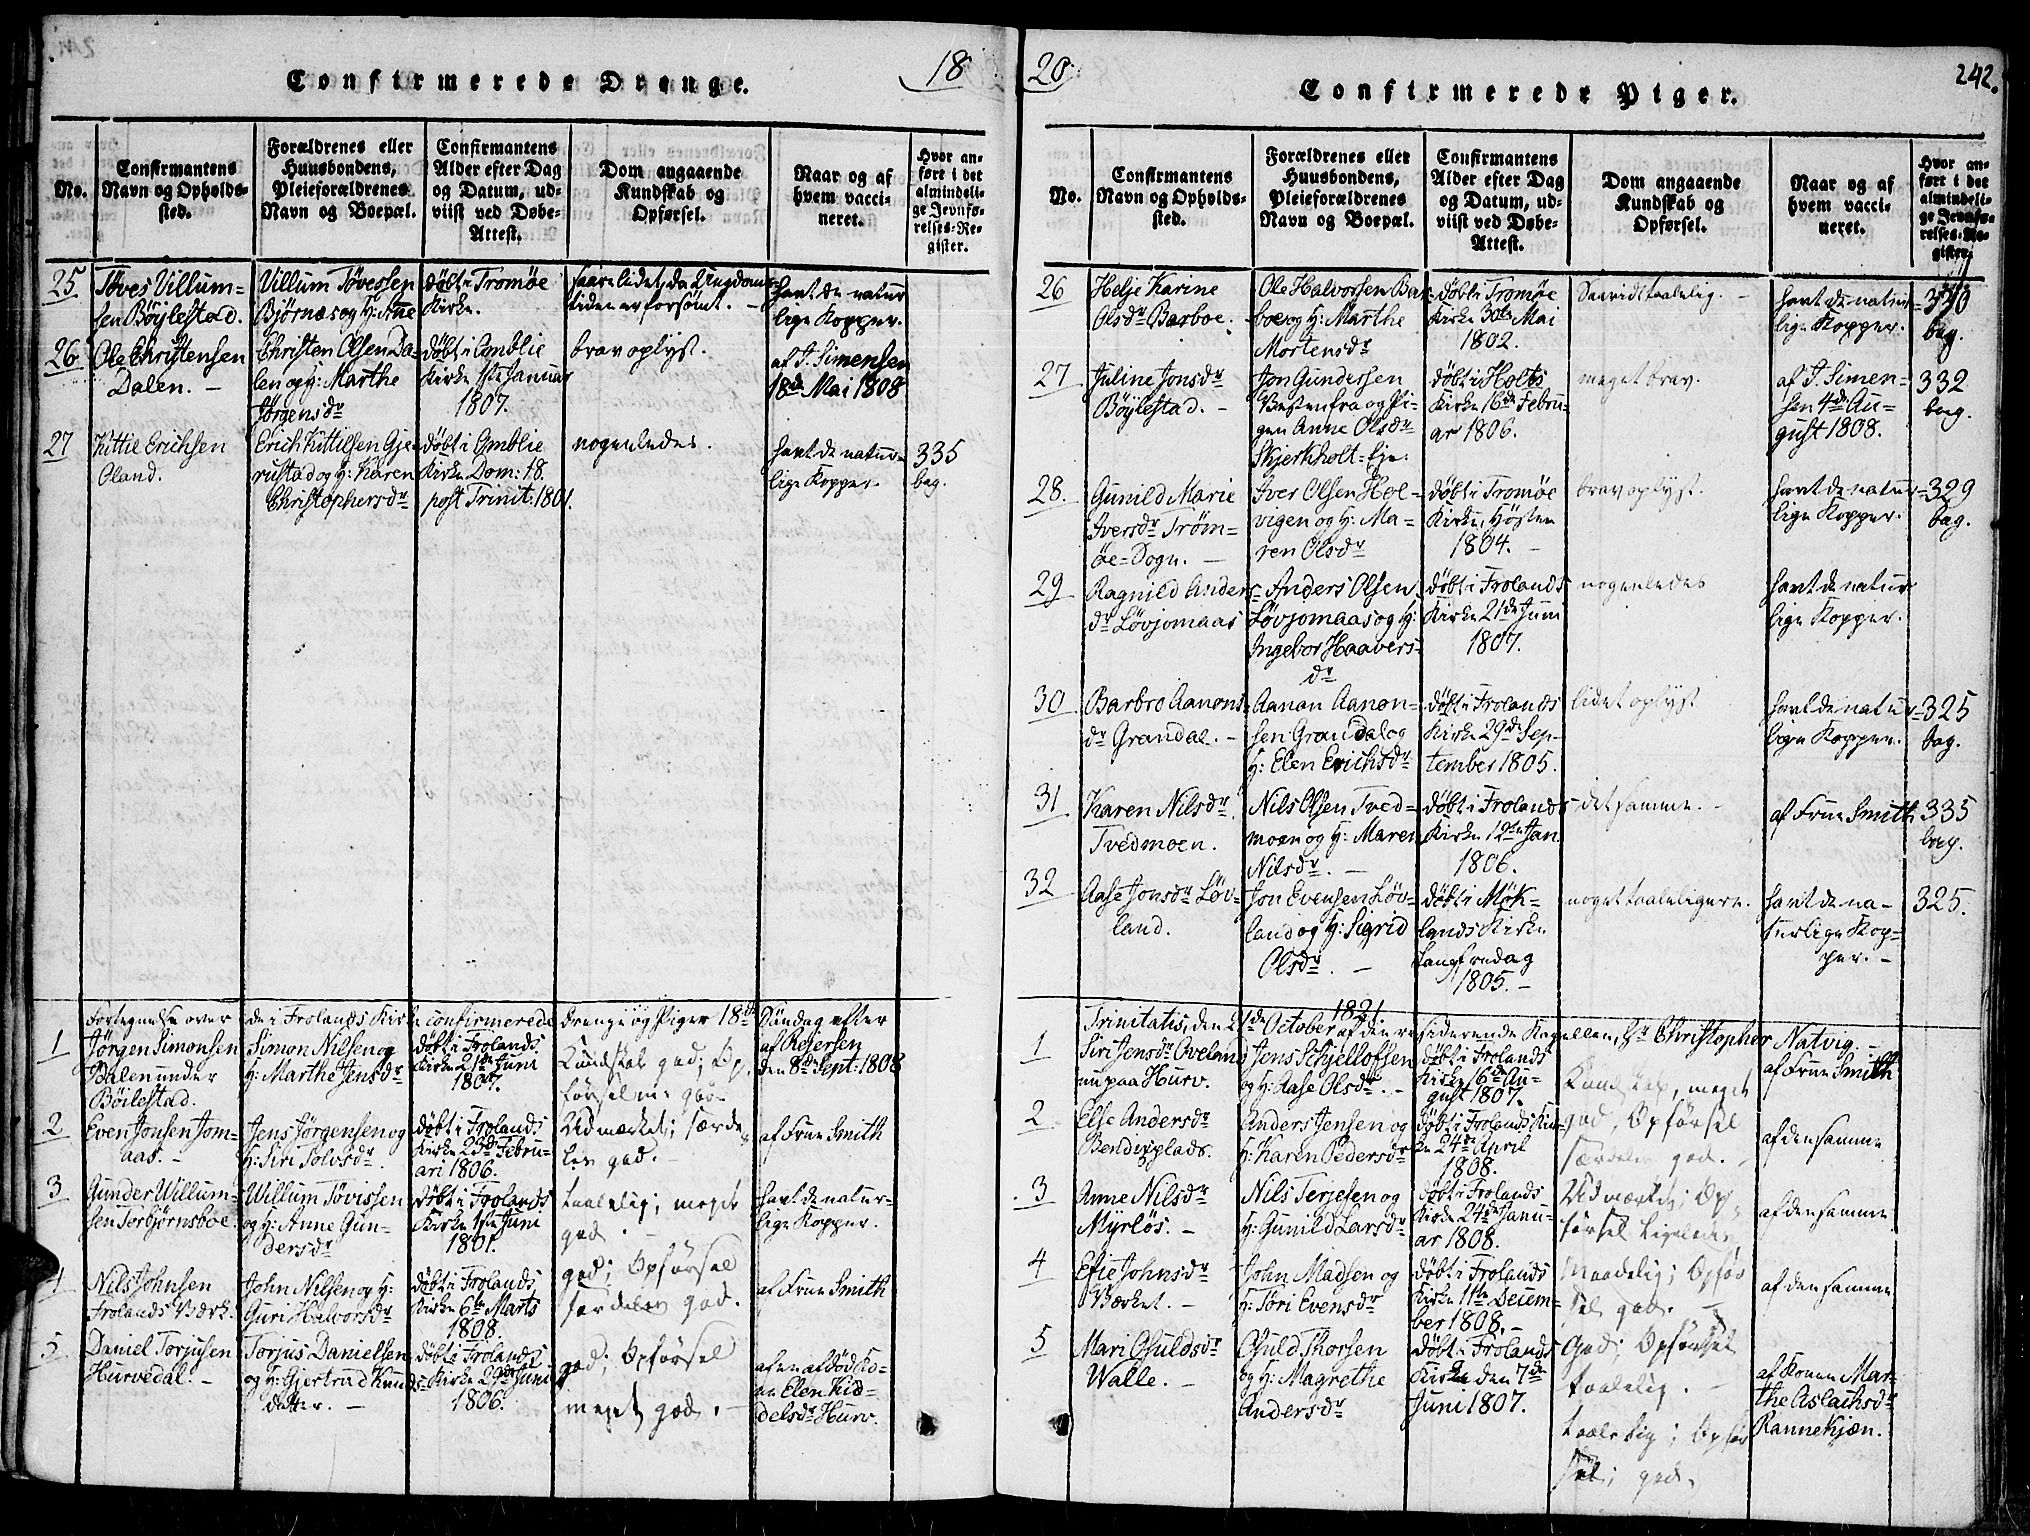 Confirmerede Drenge.
18
No.
Confirmantens
Navn og Opholds-
sted.
Forældrenes eller
Huusbondens,
Pleieforældrenes
Navn og Boepæl.
Confirmantens
Alder efter Dag
og Datum, ud-
viist ved Døbe-
Attest.
Dom angaaende
Kundskab og
Opførsel.
Naar og af
hvem vacci-
neret.
Hvor an-
ført i det
almindeli-
ge Jevnfø-
relses-Re-
gister.
25
Töves Villum-
sen Böylestad.
Villum Tövessen
Bjørnæs og H: Ane
døbt i Tromøe
Kirke.
saare lidet, da Ungdoms-
tiden er forsömt. -
havt de natur
lige Kopper.
26
Ole Christensen
Dalen. -
Christen Olsen Da-
len og H: Marthe
Jörgensdr
døbt i Amblie
Kirke 1ste Januar
1807.
brav oplyst.
af J. Simensen
18de Mai 1808
27
Kittil Erichsen
Oland.
Erich Kittilsen Gje-
rustad og H: Karen
Christophersdr
døbt i Amblie
Kirke Dom: 18.
post Trinit: 1801.
nogenledes.
havt de natur-
lige Kopper.
335
bag.
Fortegnelse over de i Frolands Kirke confirmerede Drenge og Piger 18de Söndag efter
1
Jörgen Simonsen
Dalen under
Böilestad.
Simon Nilsen og
H: Marthe Jensdr
døbt i Frolands
Kirke 21de Juni
1807.
Kundskab god; Op-
förselen god.
af Reiersen
den 8de Sept: 1808
2
Even Jonsen Jom-
aas. -
Jens Jörgensen og
H: Siri Tolvsdr.
døbt i Frolands
Kirke 23de Febru-
ari 1806.
Udmærket; særde-
les god. -
af Frue Smith
3
Gunder Willum-
sen Torbjörnsboe.
Willum Tövissen
og H: Anne Gun-
dersdr
døbt i Frolands
Kirke 1ste Juni
1801.
taalelig; meget
god. -
havt de natur-
lige Kopper.
4
Nils Johnsen
Frolands Værk.
John Nilsen og H:
Guri Halvorsdr
døbt i Frolands
Kirke 6te Marts
1808.
god; Opførsel
særdeles god.
af Frue Smith
5
Daniel Torjusen
Hurvedal. -
Torjus Danielsen
og H: Gjertrud Knuds-
datter. -
døbt i Frolands
Kirke 29de Juni
1806.
god; Opførsel
meget god. -
af en afdöd Ko-
ne Elen Kid-
delsdr Hurv.
20
Confirmerede Piger.
242.
No.
Confirmantens
Navn og Opholds-
sted.
Forældrenes eller
Huusbondens,
Pleieforældrenes
Navn og Boepæl.
Confirmantens
Alder efter Dag
og Datum, ud-
viist ved Døbe-
Attest.
Dom angaaende
Kundskab og
Opførsel.
Naar og af
hvem vacci-
neret.
Hvor an-
ført i det
almindeli-
ge Jevnfø-
relses-Re-
gister.
26
Helje Karine
Olsdr Barboe.
Ole Halvorsen Bar-
boe og H: Marthe
Mortensdr
døbt i Tromøe
Kirke 30te Mai
1802.
Saavidt taalelig. -
havt de natur-
lige Kopper.
330
bag.
27
Juline Jonsdr
Böylestad. -
Jon Gundersen
Vestenfra og Pi-
gen Anne Olsdr
Skjerkholt-Eje.
døbt i Holts
Kirke 16de Febru-
ar 1806.
meget brav.
af J. Simen-
sen 4de Au-
gust 1808.
332
bag.
28.
Gunild Marie
Iversdr Tröm-
öe-Sogn. -
Iver Olsen Hoe-
vigen og H: Ma-
ren Olsdr
døbt i Tromøe
Kirke, Høsten
1804. -
brav oplyst.
havt de natur-
lige Kopper.
329
bag.
29
Ragnild Anders-
dr Lövjomaas
Anders Olsen
Lövjomaas og H:
Ingebor Haavers-
dr
døbt i Frolands
Kirke 21de Juni
1807.
nogenledes
havt de natur
lige Kopper.
30
Barbro Aanons-
dr Grandal. -
Aanon Aanon-
sen Grandal og
H: Elen Erichsdr
døbt i Frolands
Kirke 29de Sep-
tember 1805.
lidet oplyst
havt de natur-
lige Kopper.
325
bag.
31
Karen Nilsdr
Tvedmoen.
Nils Olsen Tved-
moen og H: Maren
Nilsdr. -
døbt i Frolands
Kirke 12te Jan.
1806.
det samme. -
af Frue Smith
335
bag.
32
Aase Jonsdr Löv-
land.
Jon Evensen Löv-
land og H: Sigrid
Olsdr. -
døbt i Mök-
lands Kirke
Langfredag
1805. -
noget taaleligere.
havt de na-
turlige Kop-
per. -
325.
1821.
Trinitatis, den 21de October af den residerende Kapellan, Hr Christopher Natvig. -
1
Siri Jensdr Oveland
nu paa Hurv.
Jens Schjelloffsen
og H: Aase Olsdr. -
døbt i Frolands
Kirke 16de Au-
gust 1807.
Kundskab, meget
god, Opførsel
særdeles god. -
af Frue Smith
2
Else Andersdr
Bendixplads.
Anders Jensen og
H: Karen Pedersdr
døbt i Frolands Kir-
ke 24de April
1808.
af den samme
3
Anne Nilsdr
Myrlös. -
Nils Terjesen og
H: Gunild Larsdr
døbt i Frolands
Kirke 24de Janu-
ar 1808.
Udmærket; Op-
førsel ligeledes
af den samme
4
Efie Johnsdr
Værket. -
John Madsen og
H: Töri Evensdr
døbt i Frolands
Kirke 11te Decem-
ber 1808. -
Maadelig; Opfør
sel god. -
af den samme
5
Mari Gfuldsdr
Walle. -
Gfuld Thorsen
og H: Magrethe
Andersdr
døbt i Frolands
Kirke den 7de
Juni 1807.
God; Opførsel
taalelig. -
taalelig; Opfør
sel; god.
af Konen Mar-
the Aslachsdr
Rannekjæn.